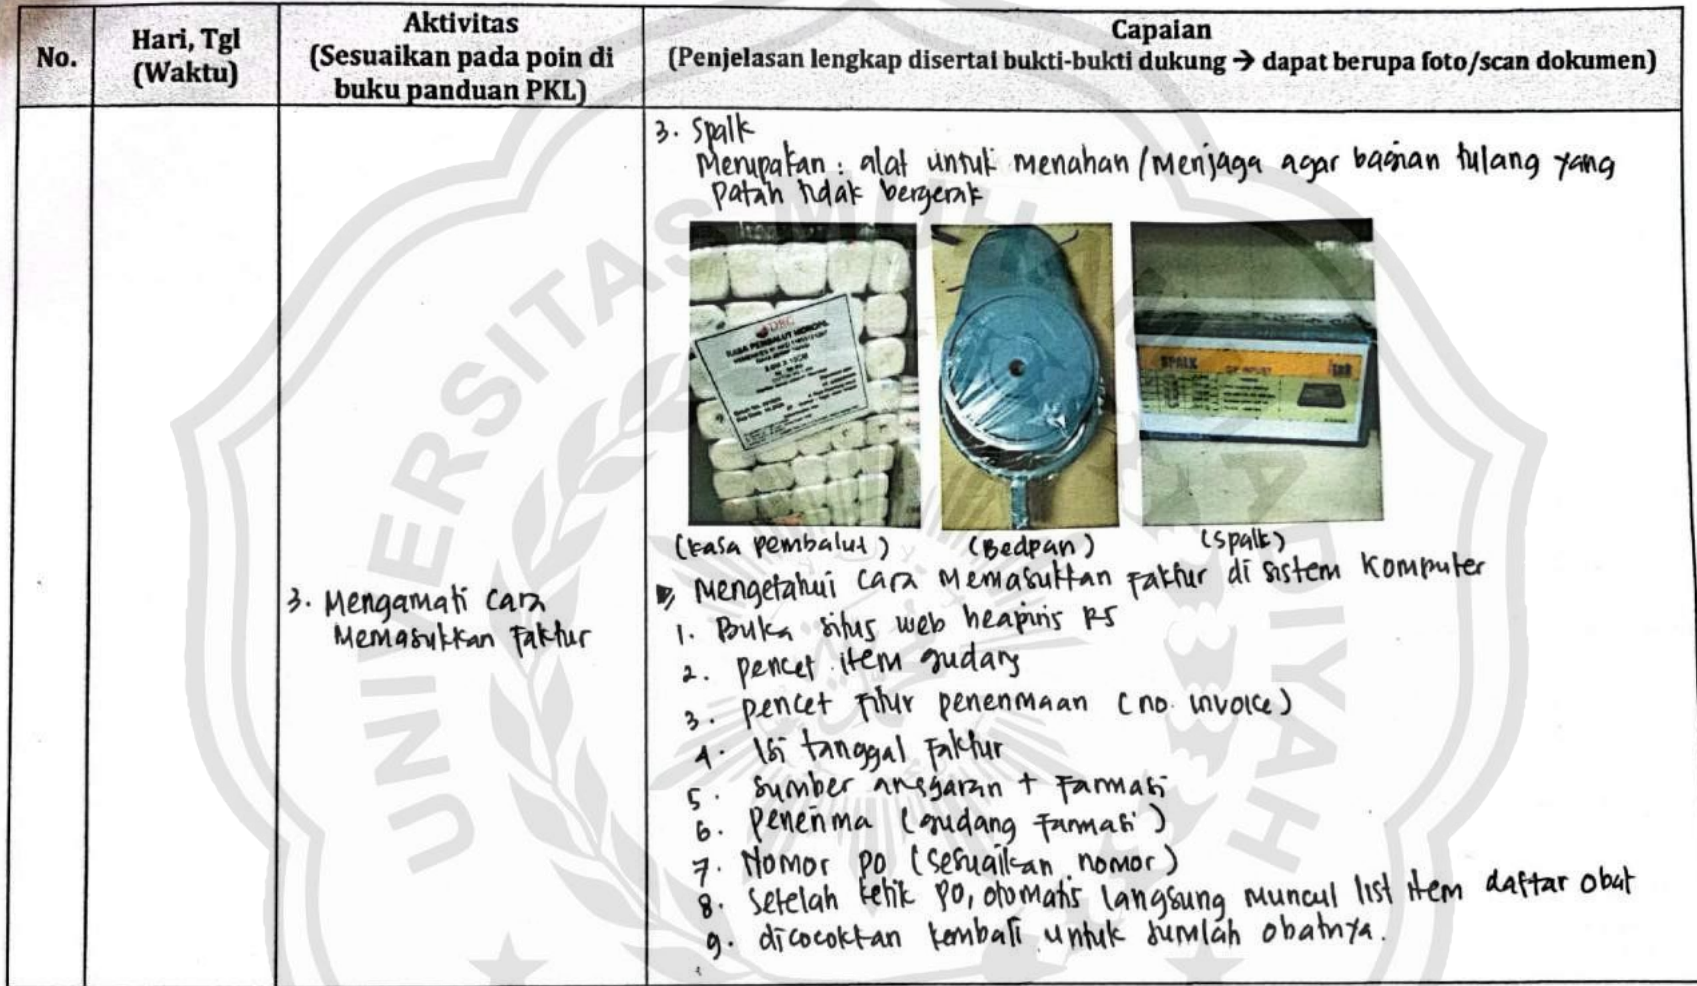 No.
Hari, Tgl
(Waktu)
Aktivitas
(Sesuaikan pada poin di
buku panduan PKL)
Capaian
(Penjelasan lengkap disertai bukti-bukti dukung → dapat berupa foto/scan dokumen)
3. Spalk
Merupakan : alat untuk menahan/menjaga agar bagian tulang yang
patah tidak bergerak
KASA PEMBALUT HIDROFIL
SPALK
(kasa pembalut)
(Bedpan)
(Spalk)
3. Mengamati cara
Memasukkan Faktur
Mengetahui cara Memasukkan Faktur di sistem Komputer
1. Buka situs web heapinis RS
2. pencet item gudang
3. pencet fitur penerimaan (no. invoice)
4. Isi tanggal Faktur
5. Sumber anggaran + Farmasi
6. Penerima (gudang Farmasi)
7. Nomor PO (sesuaikan nomor)
8. Setelah ketik PO, otomatis langsung muncul list item daftar obat
9. dicocokkan kembali untuk jumlah obatnya.
UNIVERSITAS MUH
ADIYAH